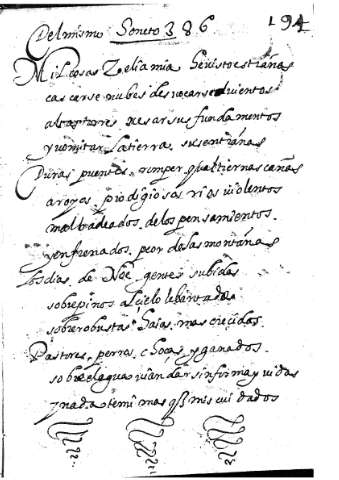 194
Del mismo Soneto 386
Mil cosas Zelia mia he visto estrañas
cascarse nubes desuocarse vientos
altas torres uesar sus fundamentos
y vomitar la tierra sus entrañas
Duras puentes romper qual tiernas cañas
aroyos prodigiosos rios violentos
mal vadeados de los pensamientos
y enfrenados peor de las montañas
los dias de Noe gentes subidas
sobre pinos al cielo lebantados
sobre robustas haias mas crecidas
Pastores perros chosas y ganados
sobre el agua vi andar sin forma y vidas
y nada temi mas q mis cuidados